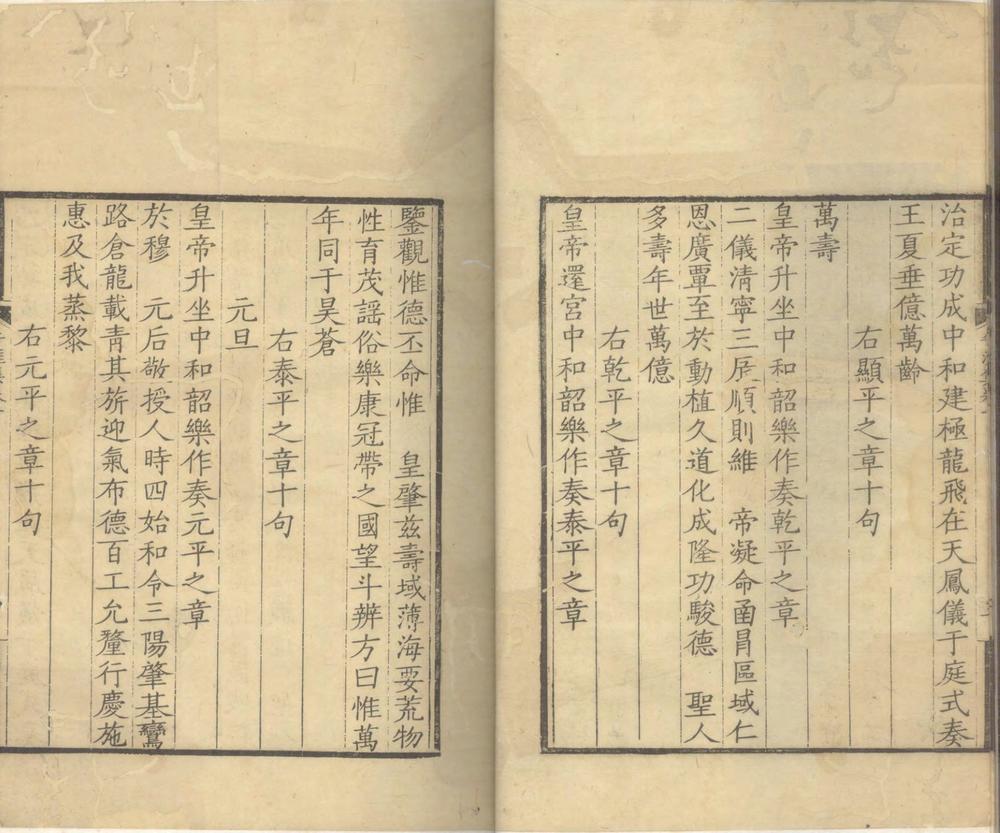 治定功成中和建極龍飛在天鳳儀于庭式奏
王夏垂億萬齡
右顯平之章十句
萬壽
皇帝升坐中和韶樂作奏乾平之章
二儀清寧三辰順則維 帝凝命函冐區域仁
恩廣覃至於動植久道化成隆功駿德 聖人
多壽年世萬億
右乾平之章十句
皇帝還宮中和韶樂作奏泰平之章
鑒觀惟德丕命惟 皇肇兹壽域薄海要荒物
性育茂謡俗樂康冠帶之國望斗辨方曰惟萬
年同于昊蒼
右泰平之章十句
元旦
皇帝升坐中和韶樂作奏元平之章
於穆 元后敬授人時四始和令三陽肇基鸞
路倉龍載青其旂迎氣布德百工允釐行慶施
惠及我蒸黎
右元平之章十句